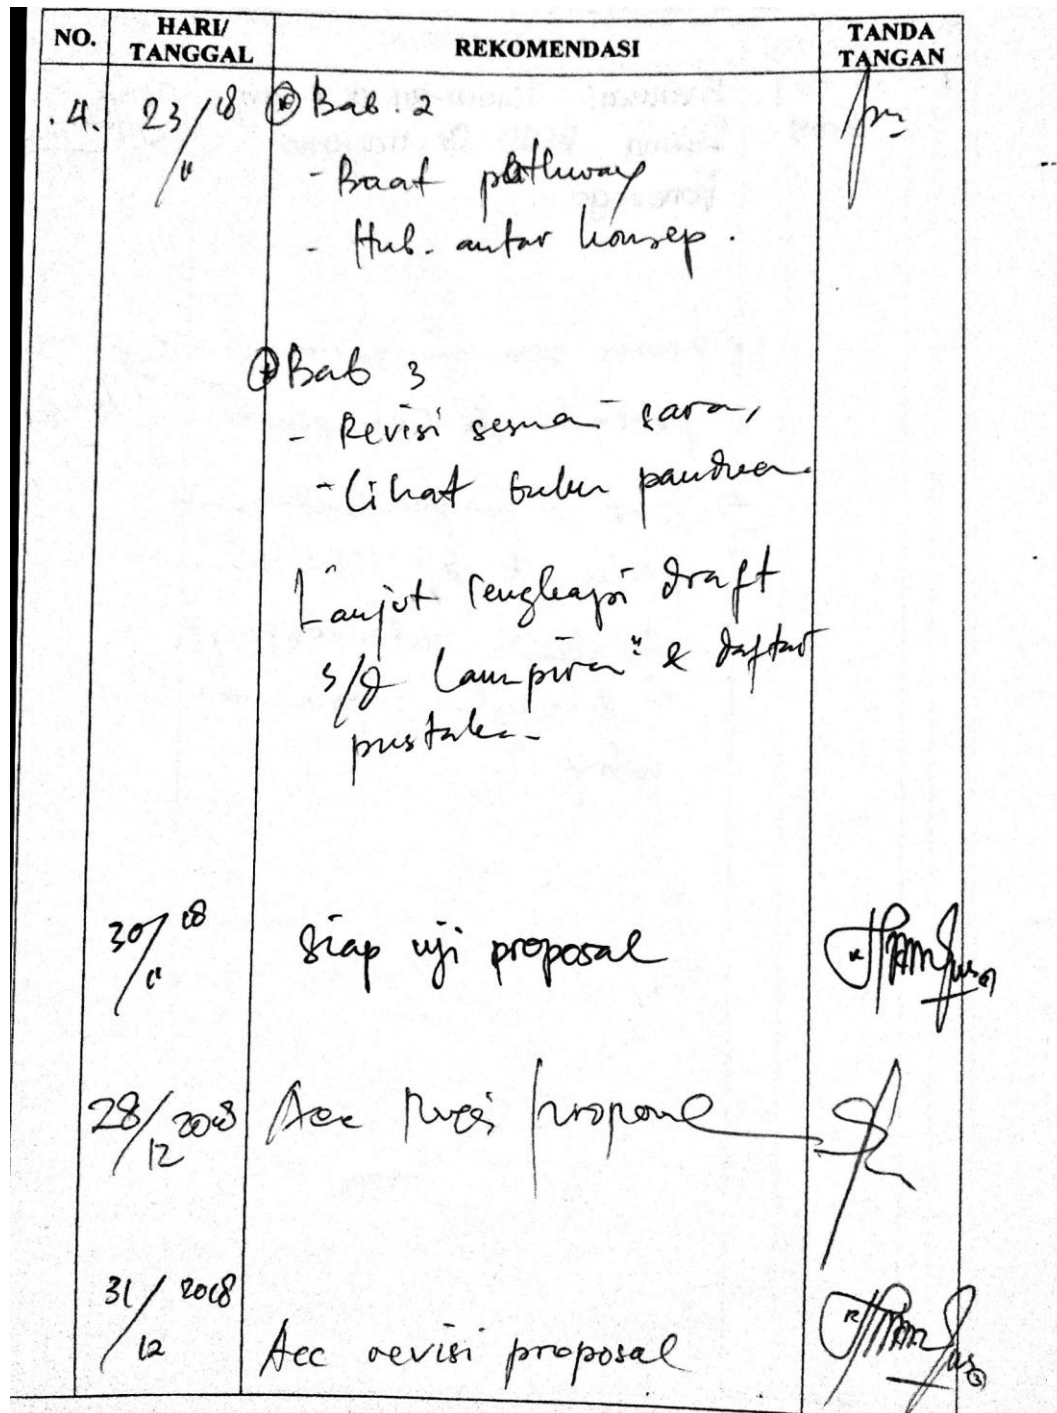 NO. HARI/ TANGGAL REKOMENDASI TANDA TANGAN
4. 23/11 18 Bab. 2
- Buat pathway
- Hub. antar konsep.
Bab 3
- Revisi sesuai saran,
- Lihat buku panduan
Lanjut lengkapi draft
s/d lampiran" & daftar
pustaka-
30/11 18 Siap uji proposal
28/12 2018 Acc proposal
31/12 2018 Acc revisi proposal